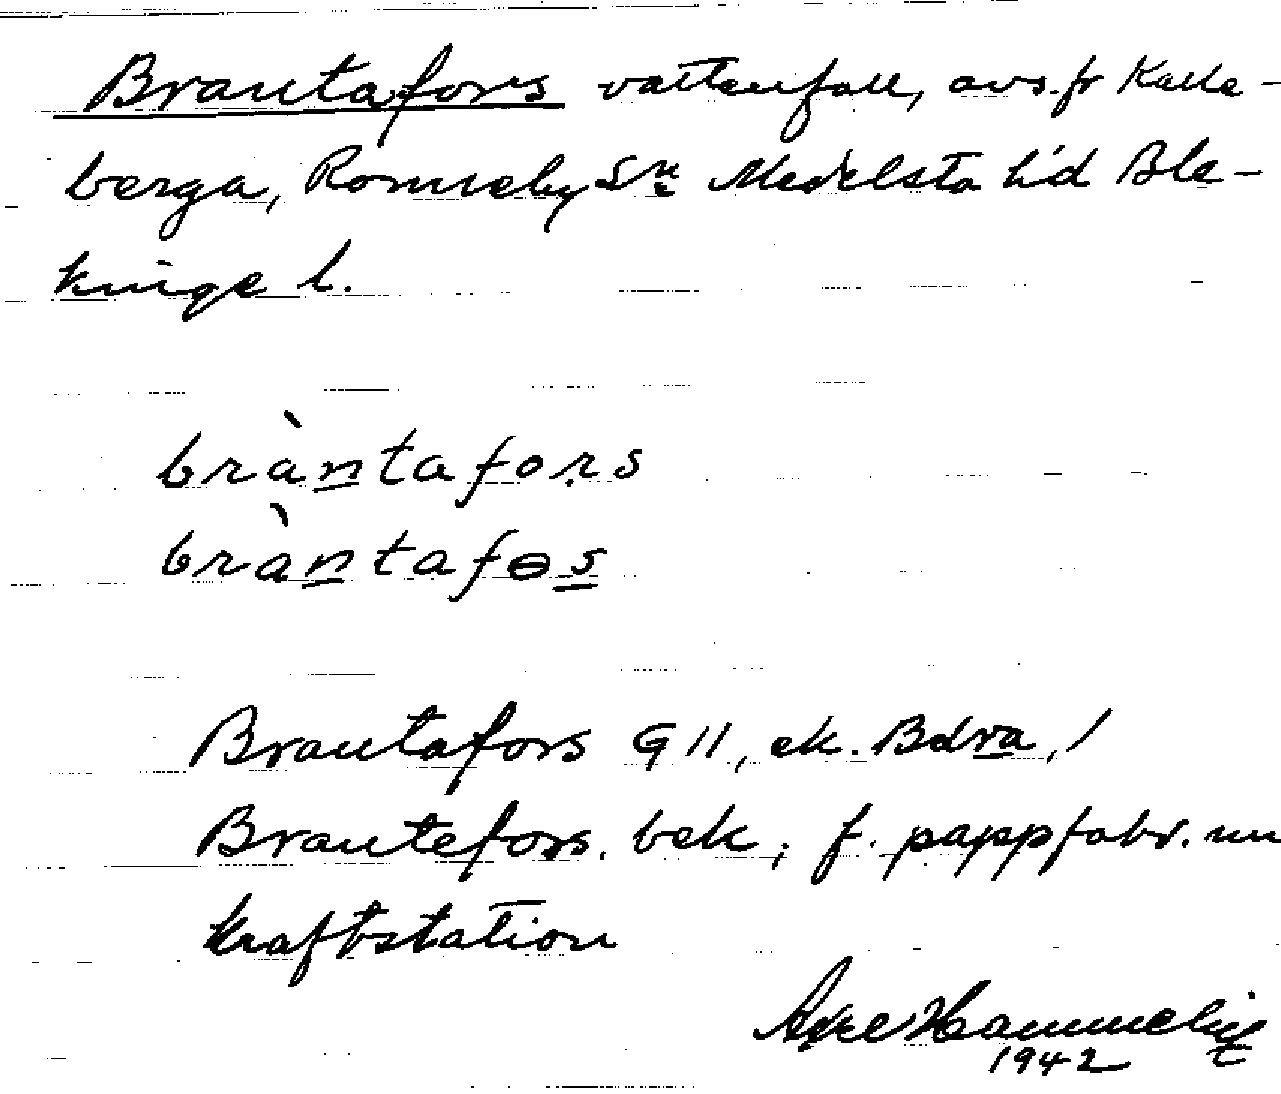 Brantafors vattenfall, avs. fr Kalle-
berga, Ronneby Sn Medelsta h'd Ble-
kinge l.
bràntafors
bràntafɵs
Brantafors G 11, ek. Bdra, /
Brantefors. bek, f. pappfabr. nu
kraftstation
Axel Hammelig
1942